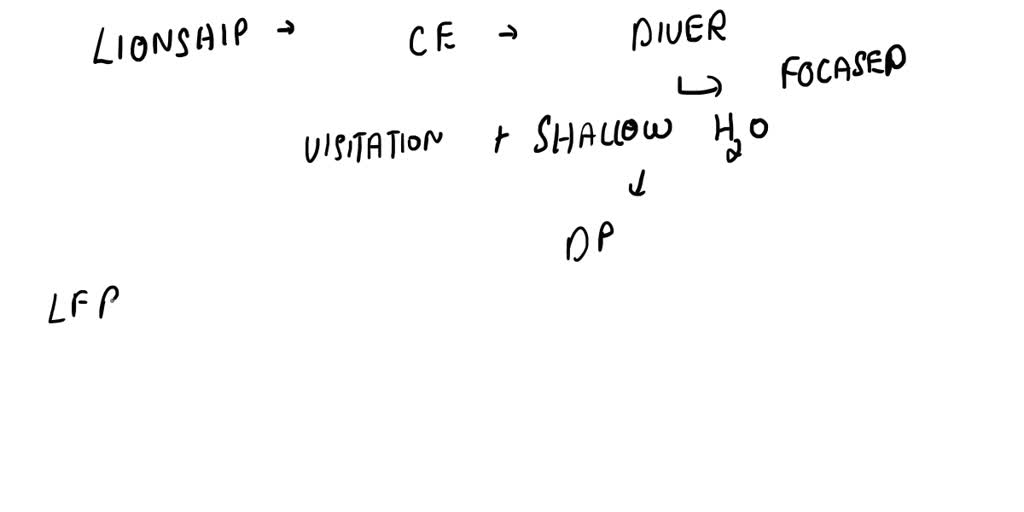 LIONSHIP → CE → DIVER
↳ FOCASED
VISITATION + SHALLOW H₂O
↓
DP
LFP